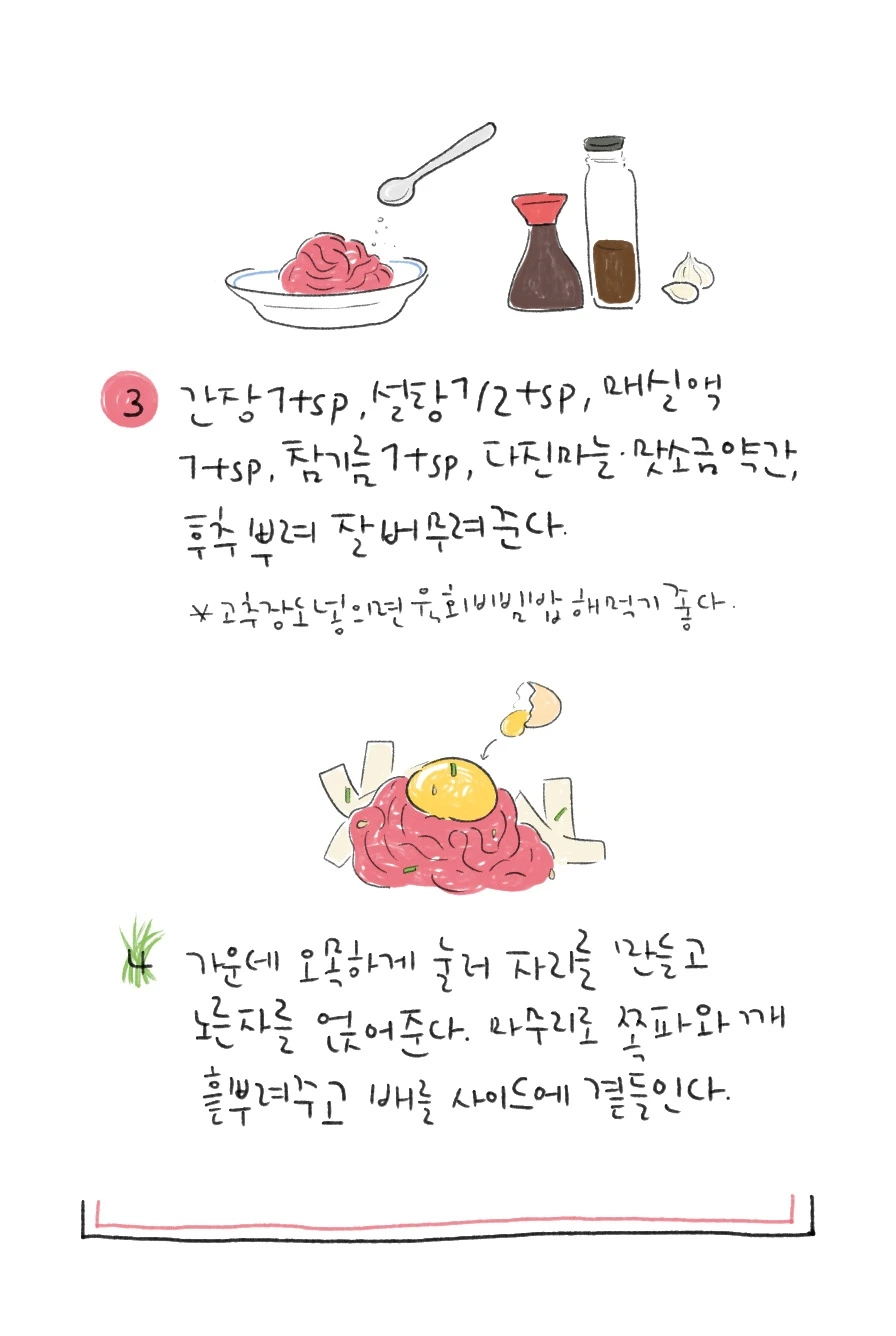 3 간장 1tsp, 설탕 1/2tsp, 매실액
1tsp, 참기름 1tsp, 다진마늘·맛소금 약간,
후추 뿌려 잘 버무려준다.
*고추장도 넣으면 육회비빔밥 해먹기 좋다.
4 가운데 오목하게 눌러 자리를 만들고
노른자를 얹어준다. 마무리로 쪽파와 깨
흩뿌려주고 배를 사이드에 곁들인다.